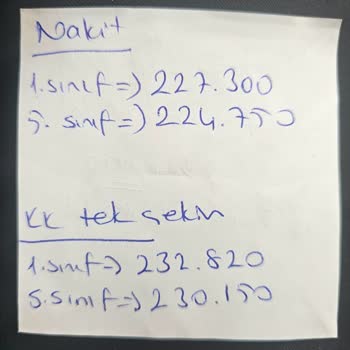 Nakit
1.sınıf=) 227.300
5. sınıf=) 224.750
KK tek çekim
1.sınıf=) 232.820
5.sınıf=) 230.150